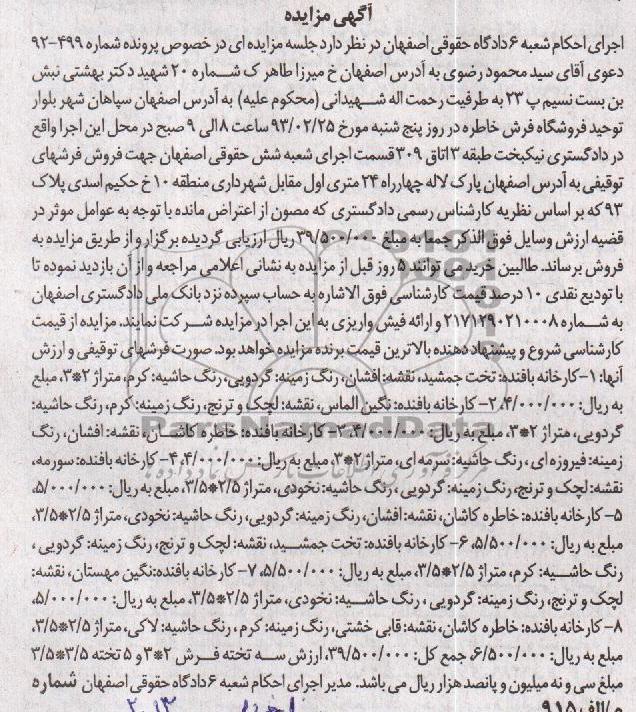 آگهی مزایده
اجرای احکام شعبه ۶ دادگاه حقوقی اصفهان در نظر دارد جلسه مزایده ای در خصوص پرونده شماره ۴۹۹-۹۲
دعوی آقای سید محمود رضوی به آدرس اصفهان خ میرزا طاهر ک شماره ۲۰ شهید دکتر بهشتی نبش
بن بست نسیم پ ۲۳ به طرفیت رحمت اله شهیدانی (محکوم علیه) به آدرس اصفهان سپاهان شهر بلوار
توحید فروشگاه فرش خاطره در روز پنج شنبه مورخ ۹۳/۰۲/۲۵ ساعت ۸ الی ۹ صبح در محل این اجرا واقع
در دادگستری نیکبخت طبقه ۳ اتاق ۳۰۹ قسمت اجرای شعبه شش حقوقی اصفهان جهت فروش فرشهای
توقیفی به آدرس اصفهان پارک لاله چهارراه ۲۴ متری اول مقابل شهرداری منطقه ۱۰ خ حکیم اسدی پلاک
۹۳ که بر اساس نظریه کارشناس رسمی دادگستری که مصون از اعتراض مانده با توجه به عوامل موثر در
قضیه ارزش وسایل فوق الذکر جمعا به مبلغ ۳۹/۵۰۰/۰۰۰ ریال ارزیابی گردیده برگزار و از طریق مزایده به
فروش برساند. طالبین خرید می توانند ۵ روز قبل از مزایده به نشانی اعلامی مراجعه و از آن بازدید نموده تا
با تودیع نقدی ۱۰ درصد قیمت کارشناسی فوق الاشاره به حساب سپرده نزد بانک ملی دادگستری اصفهان
به شماره ۲۱۷۱۲۹۰۲۱۰۰۰۸ و ارائه فیش واریزی به این اجرا در مزایده شرکت نمایند. مزایده از قیمت
کارشناسی شروع و پیشنهاد دهنده بالاترین قیمت برنده مزایده خواهد بود. صورت فرشهای توقیفی و ارزش
آنها: ۱- کارخانه بافنده: تخت جمشید، نقشه: افشان، رنگ زمینه: گردویی، رنگ حاشیه: کرم، متراژ ۲*۳، مبلغ
به ریال: ۴/۰۰۰/۰۰۰، ۲- کارخانه بافنده: نگین الماس، نقشه: لچک و ترنج، رنگ زمینه: کرم، رنگ حاشیه:
گردویی، متراژ ۲*۳، مبلغ به ریال: ۴/۰۰۰/۰۰۰، ۳- کارخانه بافنده: خاطره کاشان، نقشه: افشان، رنگ
زمینه: فیروزه ای، رنگ حاشیه: سرمه ای، متراژ ۲*۳، مبلغ به ریال: ۴/۰۰۰/۰۰۰، ۴- کارخانه بافنده: سورمه،
نقشه: لچک و ترنج، رنگ زمینه: گردویی، رنگ حاشیه: نخودی، متراژ ۲/۵*۳/۵، مبلغ به ریال: ۵/۰۰۰/۰۰۰،
۵- کارخانه بافنده: خاطره کاشان، نقشه: افشان، رنگ زمینه: گردویی، رنگ حاشیه: نخودی، متراژ ۲/۵*۳/۵،
مبلغ به ریال: ۵/۵۰۰/۰۰۰، ۶- کارخانه بافنده: تخت جمشید، نقشه: لچک و ترنج، رنگ زمینه: گردویی،
رنگ حاشیه: کرم، متراژ ۲/۵*۳/۵، مبلغ به ریال: ۵/۵۰۰/۰۰۰، ۷- کارخانه بافنده: نگین مهستان، نقشه:
لچک و ترنج، رنگ زمینه: گردویی، رنگ حاشیه: نخودی، متراژ ۲/۵*۳/۵، مبلغ به ریال: ۵/۰۰۰/۰۰۰،
۸- کارخانه بافنده: خاطره کاشان، نقشه: قابی خشتی، رنگ زمینه: کرم، رنگ حاشیه: لاکی، متراژ ۲/۵*۳/۵،
مبلغ به ریال: ۶/۵۰۰/۰۰۰، جمع کل: ۳۹/۵۰۰/۰۰۰، ارزش سه تخته فرش ۲*۳ و ۵ تخته ۳/۵*۳/۵
مبلغ سی و نه میلیون و پانصد هزار ریال می باشد. مدیر اجرای احکام شعبه ۶ دادگاه حقوقی اصفهان شماره
م/الف ۹۱۵
ParsNamadData